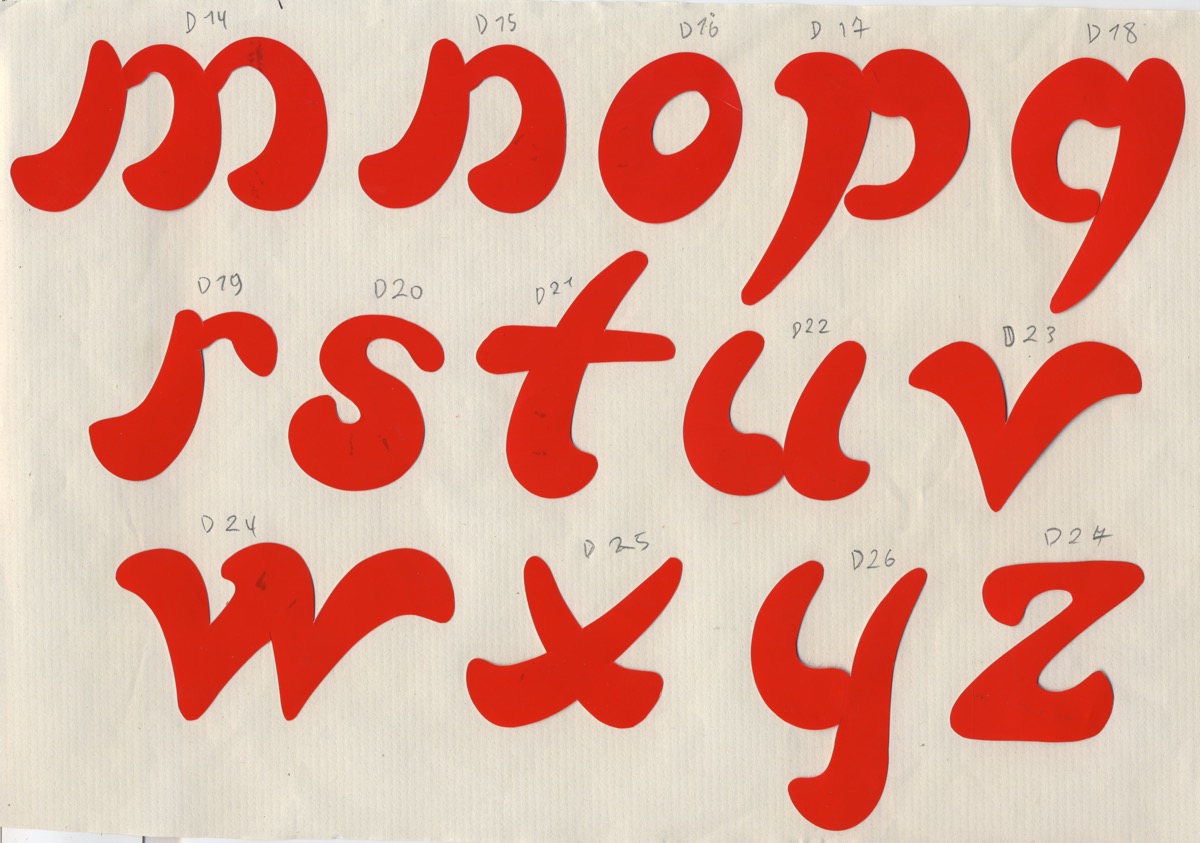 D14 D15 D16 D17 D18
m n o p q
D19 D20 D21 D22 D23
r s t u v
D24 D25 D26 D27
w x y z